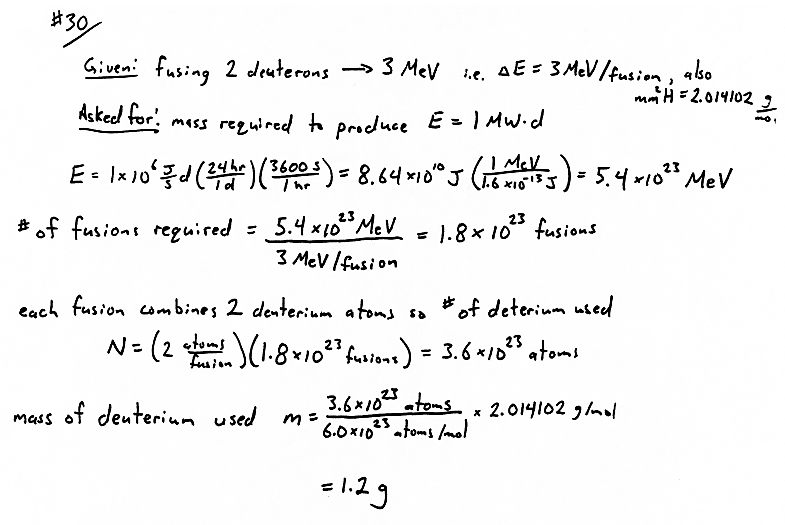 #30
Given: fusing 2 deuterons → 3 MeV i.e. ΔE = 3 MeV/fusion, also
mm ²H = 2.014102 g/mol
Asked for: mass required to produce E = 1 MW·d
E = 1×10⁶ J/s d (24 hr/1 d)(3600 s/1 hr) = 8.64 ×10¹⁰ J (1 MeV/1.6 ×10⁻¹³ J) = 5.4 ×10²³ MeV
# of fusions required = 5.4 ×10²³ MeV / 3 MeV/fusion = 1.8 × 10²³ fusions
each fusion combines 2 deuterium atoms so # of deterium used
N = (2 atoms/fusion)(1.8×10²³ fusions) = 3.6 ×10²³ atoms
mass of deuterium used m = 3.6×10²³ atoms / 6.0×10²³ atoms/mol × 2.014102 g/mol
= 1.2 g